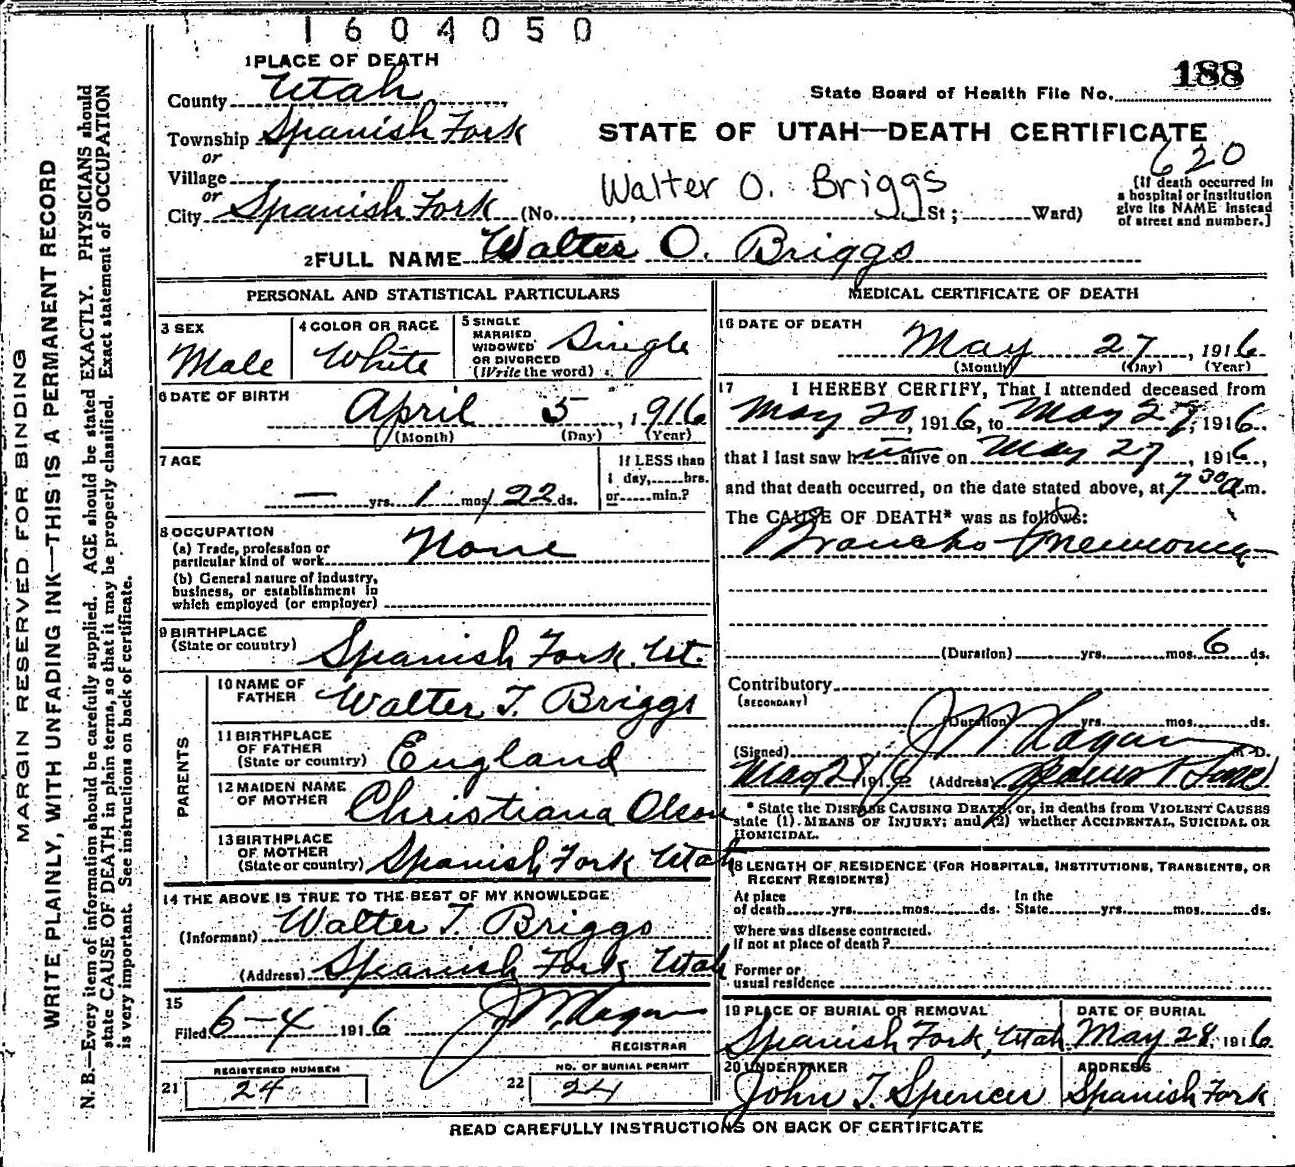 1604050
1 PLACE OF DEATH
188
County Utah
State Board of Health File No.
Township Spanish Fork
STATE OF UTAH—DEATH CERTIFICATE
or
620
Village
Walter O. Briggs
or
City Spanish Fork (No. , St; Ward)
[If death occurred in
a hospital or institution
give its NAME instead
of street and number.]
2 FULL NAME Walter O. Briggs
PERSONAL AND STATISTICAL PARTICULARS
3 SEX
Male
4 COLOR OR RACE
White
5 SINGLE
MARRIED
WIDOWED
OR DIVORCED
(Write the word)
Single
6 DATE OF BIRTH
April 5, 1916
(Month) (Day) (Year)
7 AGE
— yrs. 1 mos. 22 ds.
If LESS than
1 day, hrs.
or min.?
8 OCCUPATION
(a) Trade, profession or
particular kind of work None
(b) General nature of industry,
business, or establishment in
which employed (or employer)
9 BIRTHPLACE
(State or country) Spanish Fork, Ut.
PARENTS
10 NAME OF
FATHER Walter T. Briggs
11 BIRTHPLACE
OF FATHER
(State or country) England
12 MAIDEN NAME
OF MOTHER Christiana Olson
13 BIRTHPLACE
OF MOTHER
(State or country) Spanish Fork Utah
14 THE ABOVE IS TRUE TO THE BEST OF MY KNOWLEDGE
(Informant) Walter T. Briggs
(Address) Spanish Fork Utah
15
Filed 6-4 1916
REGISTRAR
REGISTERED NUMBER
21 24
NO. OF BURIAL PERMIT
22 24
MEDICAL CERTIFICATE OF DEATH
16 DATE OF DEATH
May 27, 1916
(Month) (Day) (Year)
17 I HEREBY CERTIFY, That I attended deceased from
May 20, 1916, to May 27, 1916.
that I last saw him alive on May 27, 1916,
and that death occurred, on the date stated above, at 7 30 a.m.
The CAUSE OF DEATH* was as follows:
Broncho Pneumonia
(Duration) yrs. mos. 6 ds.
Contributory
(SECONDARY)
(Duration) yrs. mos. ds.
(Signed) M. D.
May 28 1916 (Address)
* State the DISEASE CAUSING DEATH, or, in deaths from VIOLENT CAUSES
state (1) MEANS OF INJURY; and (2) whether ACCIDENTAL, SUICIDAL OR
HOMICIDAL.
18 LENGTH OF RESIDENCE (FOR HOSPITALS, INSTITUTIONS, TRANSIENTS, OR
RECENT RESIDENTS)
At place
of death yrs. mos. ds.
In the
State yrs. mos. ds.
Where was disease contracted.
if not at place of death?
Former or
usual residence
19 PLACE OF BURIAL OR REMOVAL
Spanish Fork, Utah
DATE OF BURIAL
May 28, 1916
20 UNDERTAKER
John T. Spencer
ADDRESS
Spanish Fork
READ CAREFULLY INSTRUCTIONS ON BACK OF CERTIFICATE
MARGIN RESERVED FOR BINDING
WRITE PLAINLY, WITH UNFADING INK—THIS IS A PERMANENT RECORD
N. B.—Every item of information should be carefully supplied. AGE should be stated EXACTLY. PHYSICIANS should
state CAUSE OF DEATH in plain terms, so that it may be properly classified. Exact statement of OCCUPATION
is very important. See instructions on back of certificate.